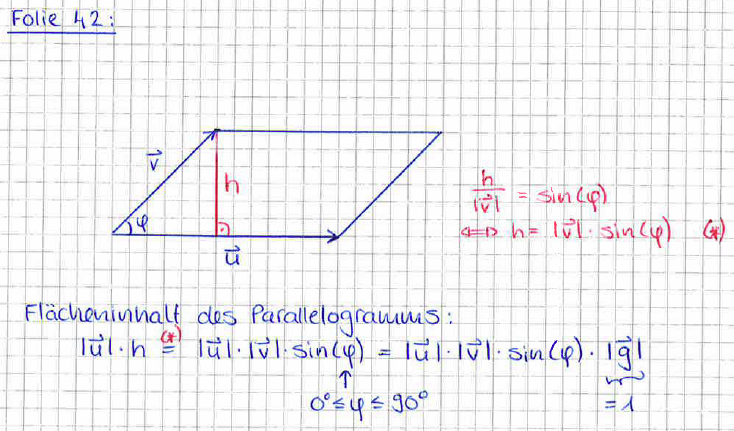 Folie 42:
v⃗
h
φ
u⃗
h/|v⃗| = sin(φ)
⇔ h = |v⃗| · sin(φ) (*)
Flächeninhalt des Parallelogramms:
|u⃗| · h =(*) |u⃗| · |v⃗| · sin(φ) = |u⃗| · |v⃗| · sin(φ) · |g⃗|
↑
0° ≤ φ ≤ 90° = 1